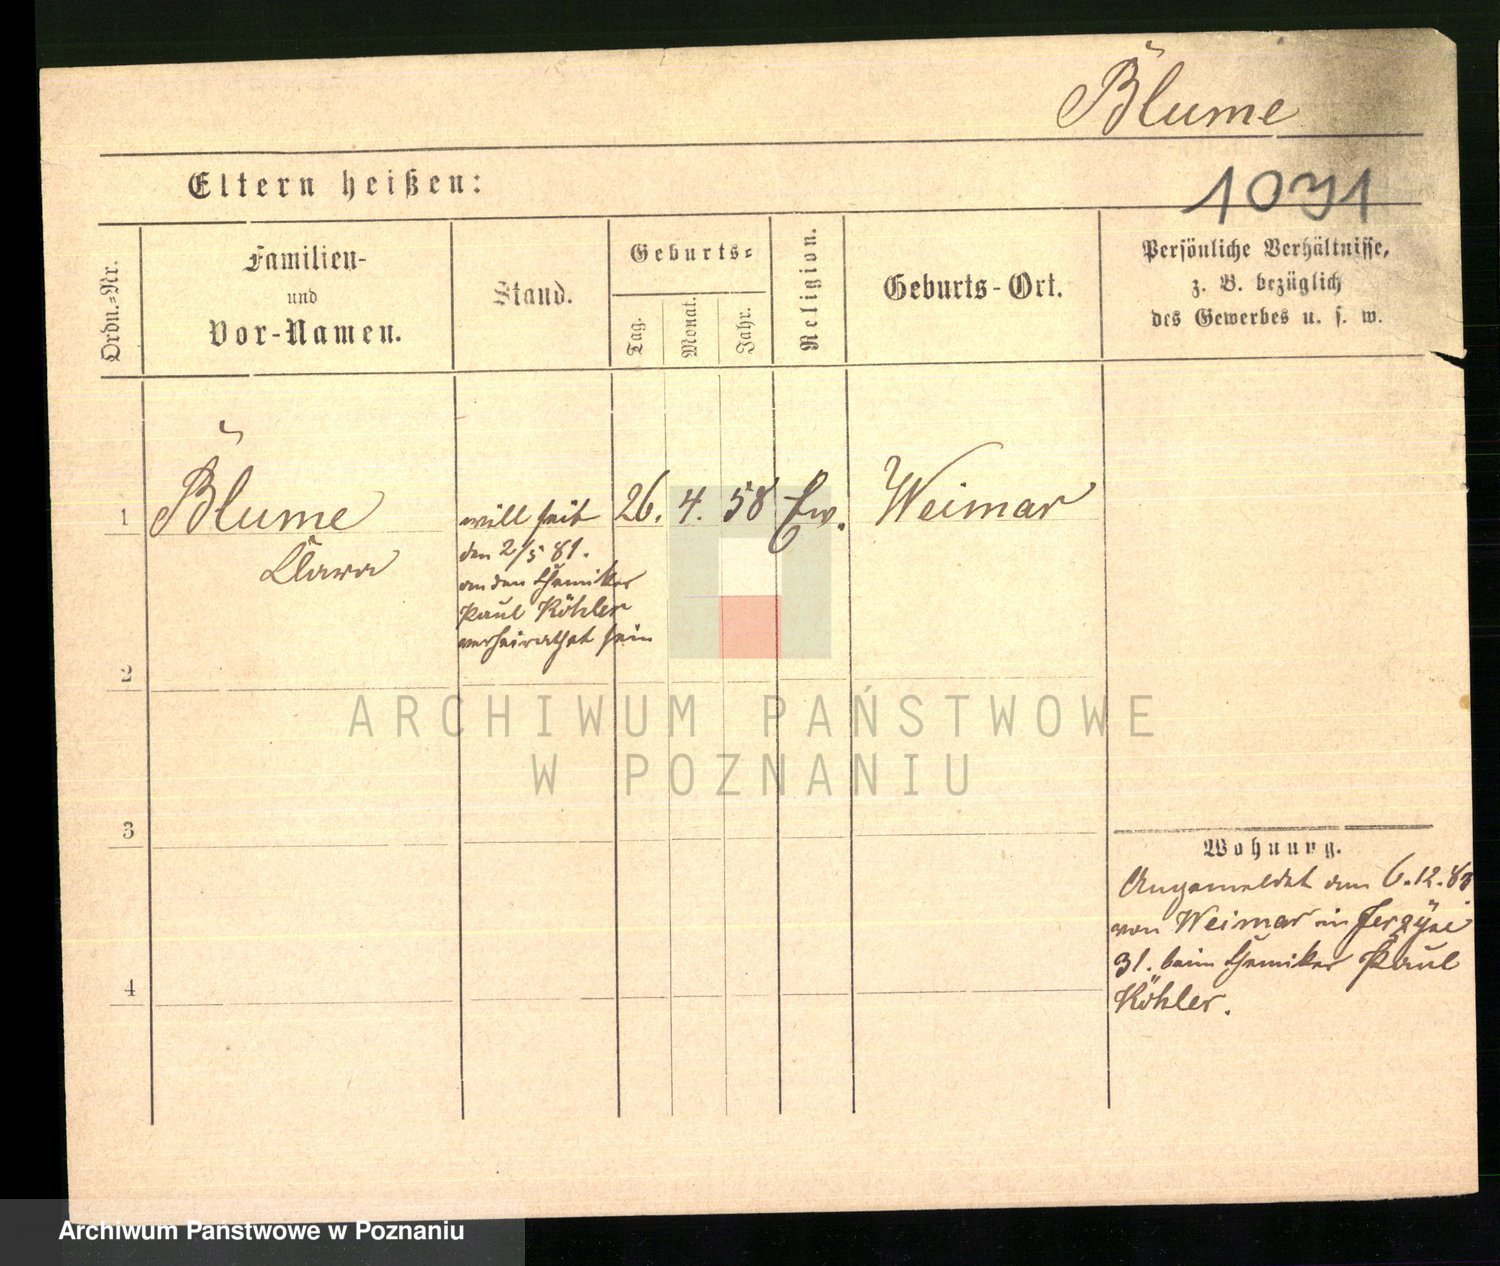 Blume
Eltern heißen:
1031
Ordn.=Nr.
Familien-
und
Vor-Namen.
Stand.
Geburts=
Tag.
Monat.
Jahr.
Religion.
Geburts-Ort.
Persönliche Verhältnisse,
z. B. bezüglich
des Gewerbes u. s. w.
1
Blume
Clara
will seit
den 2/5 81.
an den Chemiker
Paul Köhler
verheirathet sein
26. 4. 58
Ev.
Weimar
2
3
4
Wohnung.
Angemeldet den 6.12.83
von Weimar in
31. beim Chemiker Paul
Köhler.
ARCHIWUM PAŃSTWOWE
W POZNANIU
Archiwum Państwowe w Poznaniu